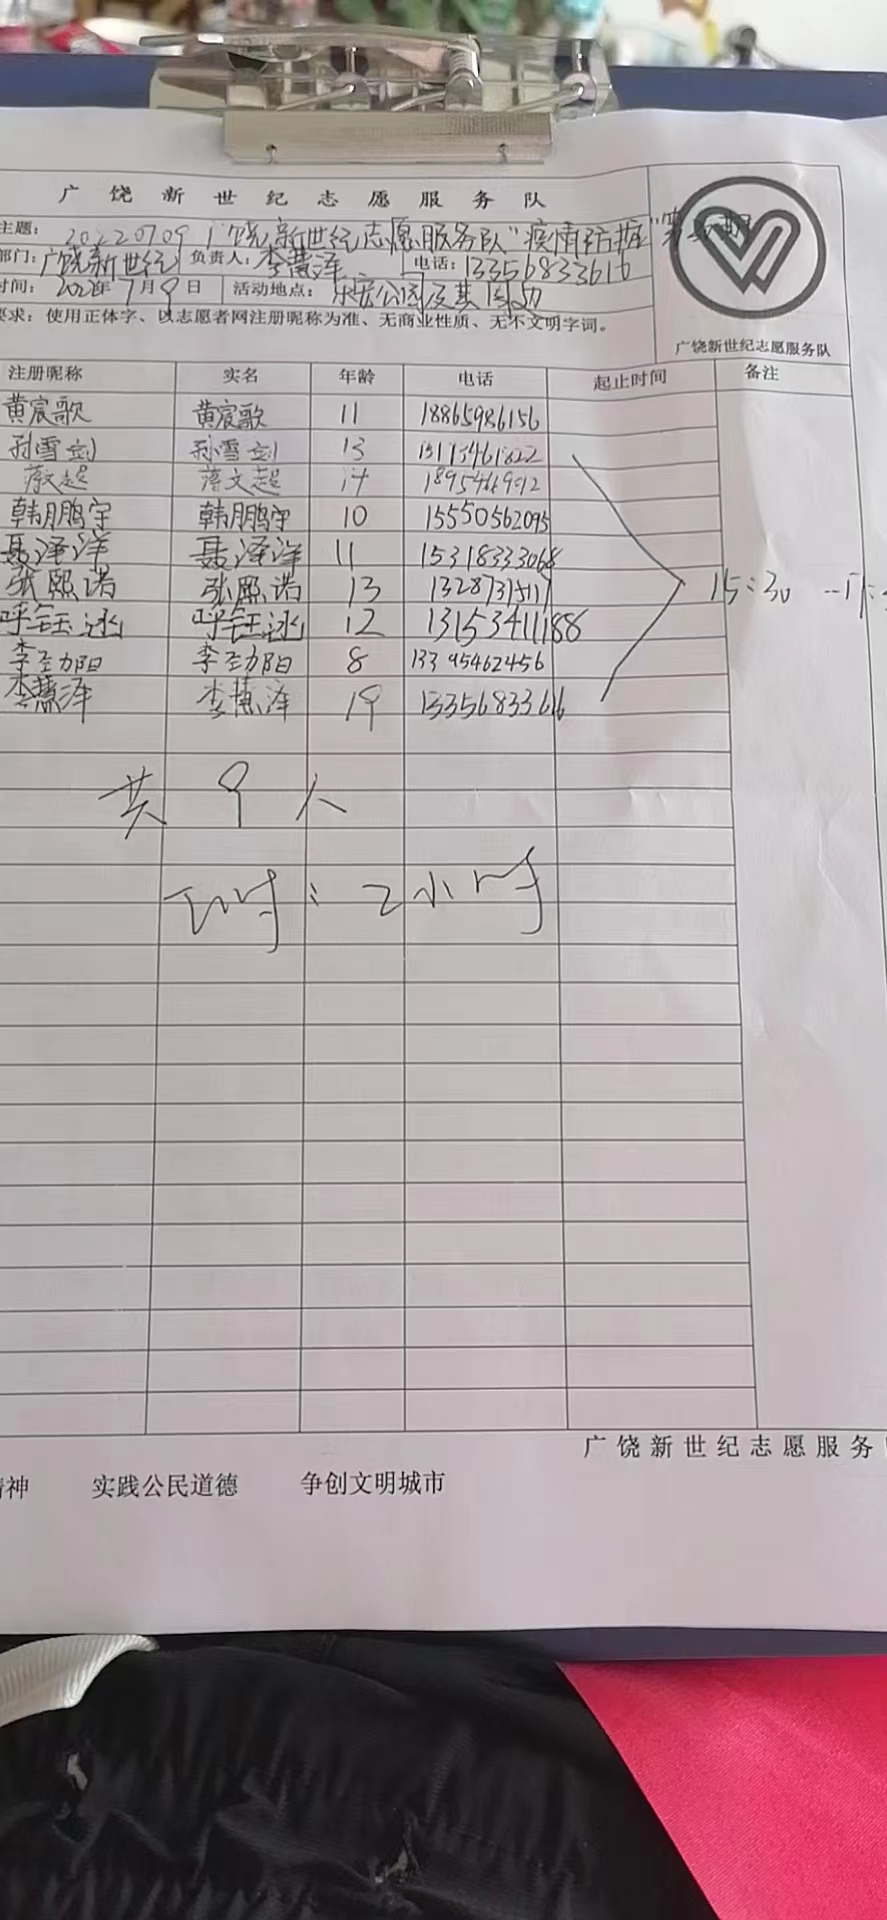 广饶新世纪志愿服务队
主题: 20220709广饶新世纪志愿服务队"疫情防控"第
部门: 广饶新世纪 负责人: 李慧泽 电话: 13356833616
时间: 2022年7月9日 活动地点: 乐安公园及其周边
要求: 使用正体字、以志愿者网注册昵称为准、无商业性质、无不文明字词。
广饶新世纪志愿服务队
注册昵称 实名 年龄 电话 起止时间 备注
黄宸歌 黄宸歌 11 18865986156
孙雪剑 孙雪剑 13
蒋文超 蒋文超 14
韩鹏宇 韩鹏宇 10 15550562095
聂泽洋 聂泽洋 11 15318333068
张熙诺 张熙诺 13
呼钰泓 呼钰泓 12 13153411188
李劲阳 李劲阳 8 13395462456
李慧泽 李慧泽 19 13356833616
15:30
共9人
工时: 2小时
广饶新世纪志愿服务
精神 实践公民道德 争创文明城市